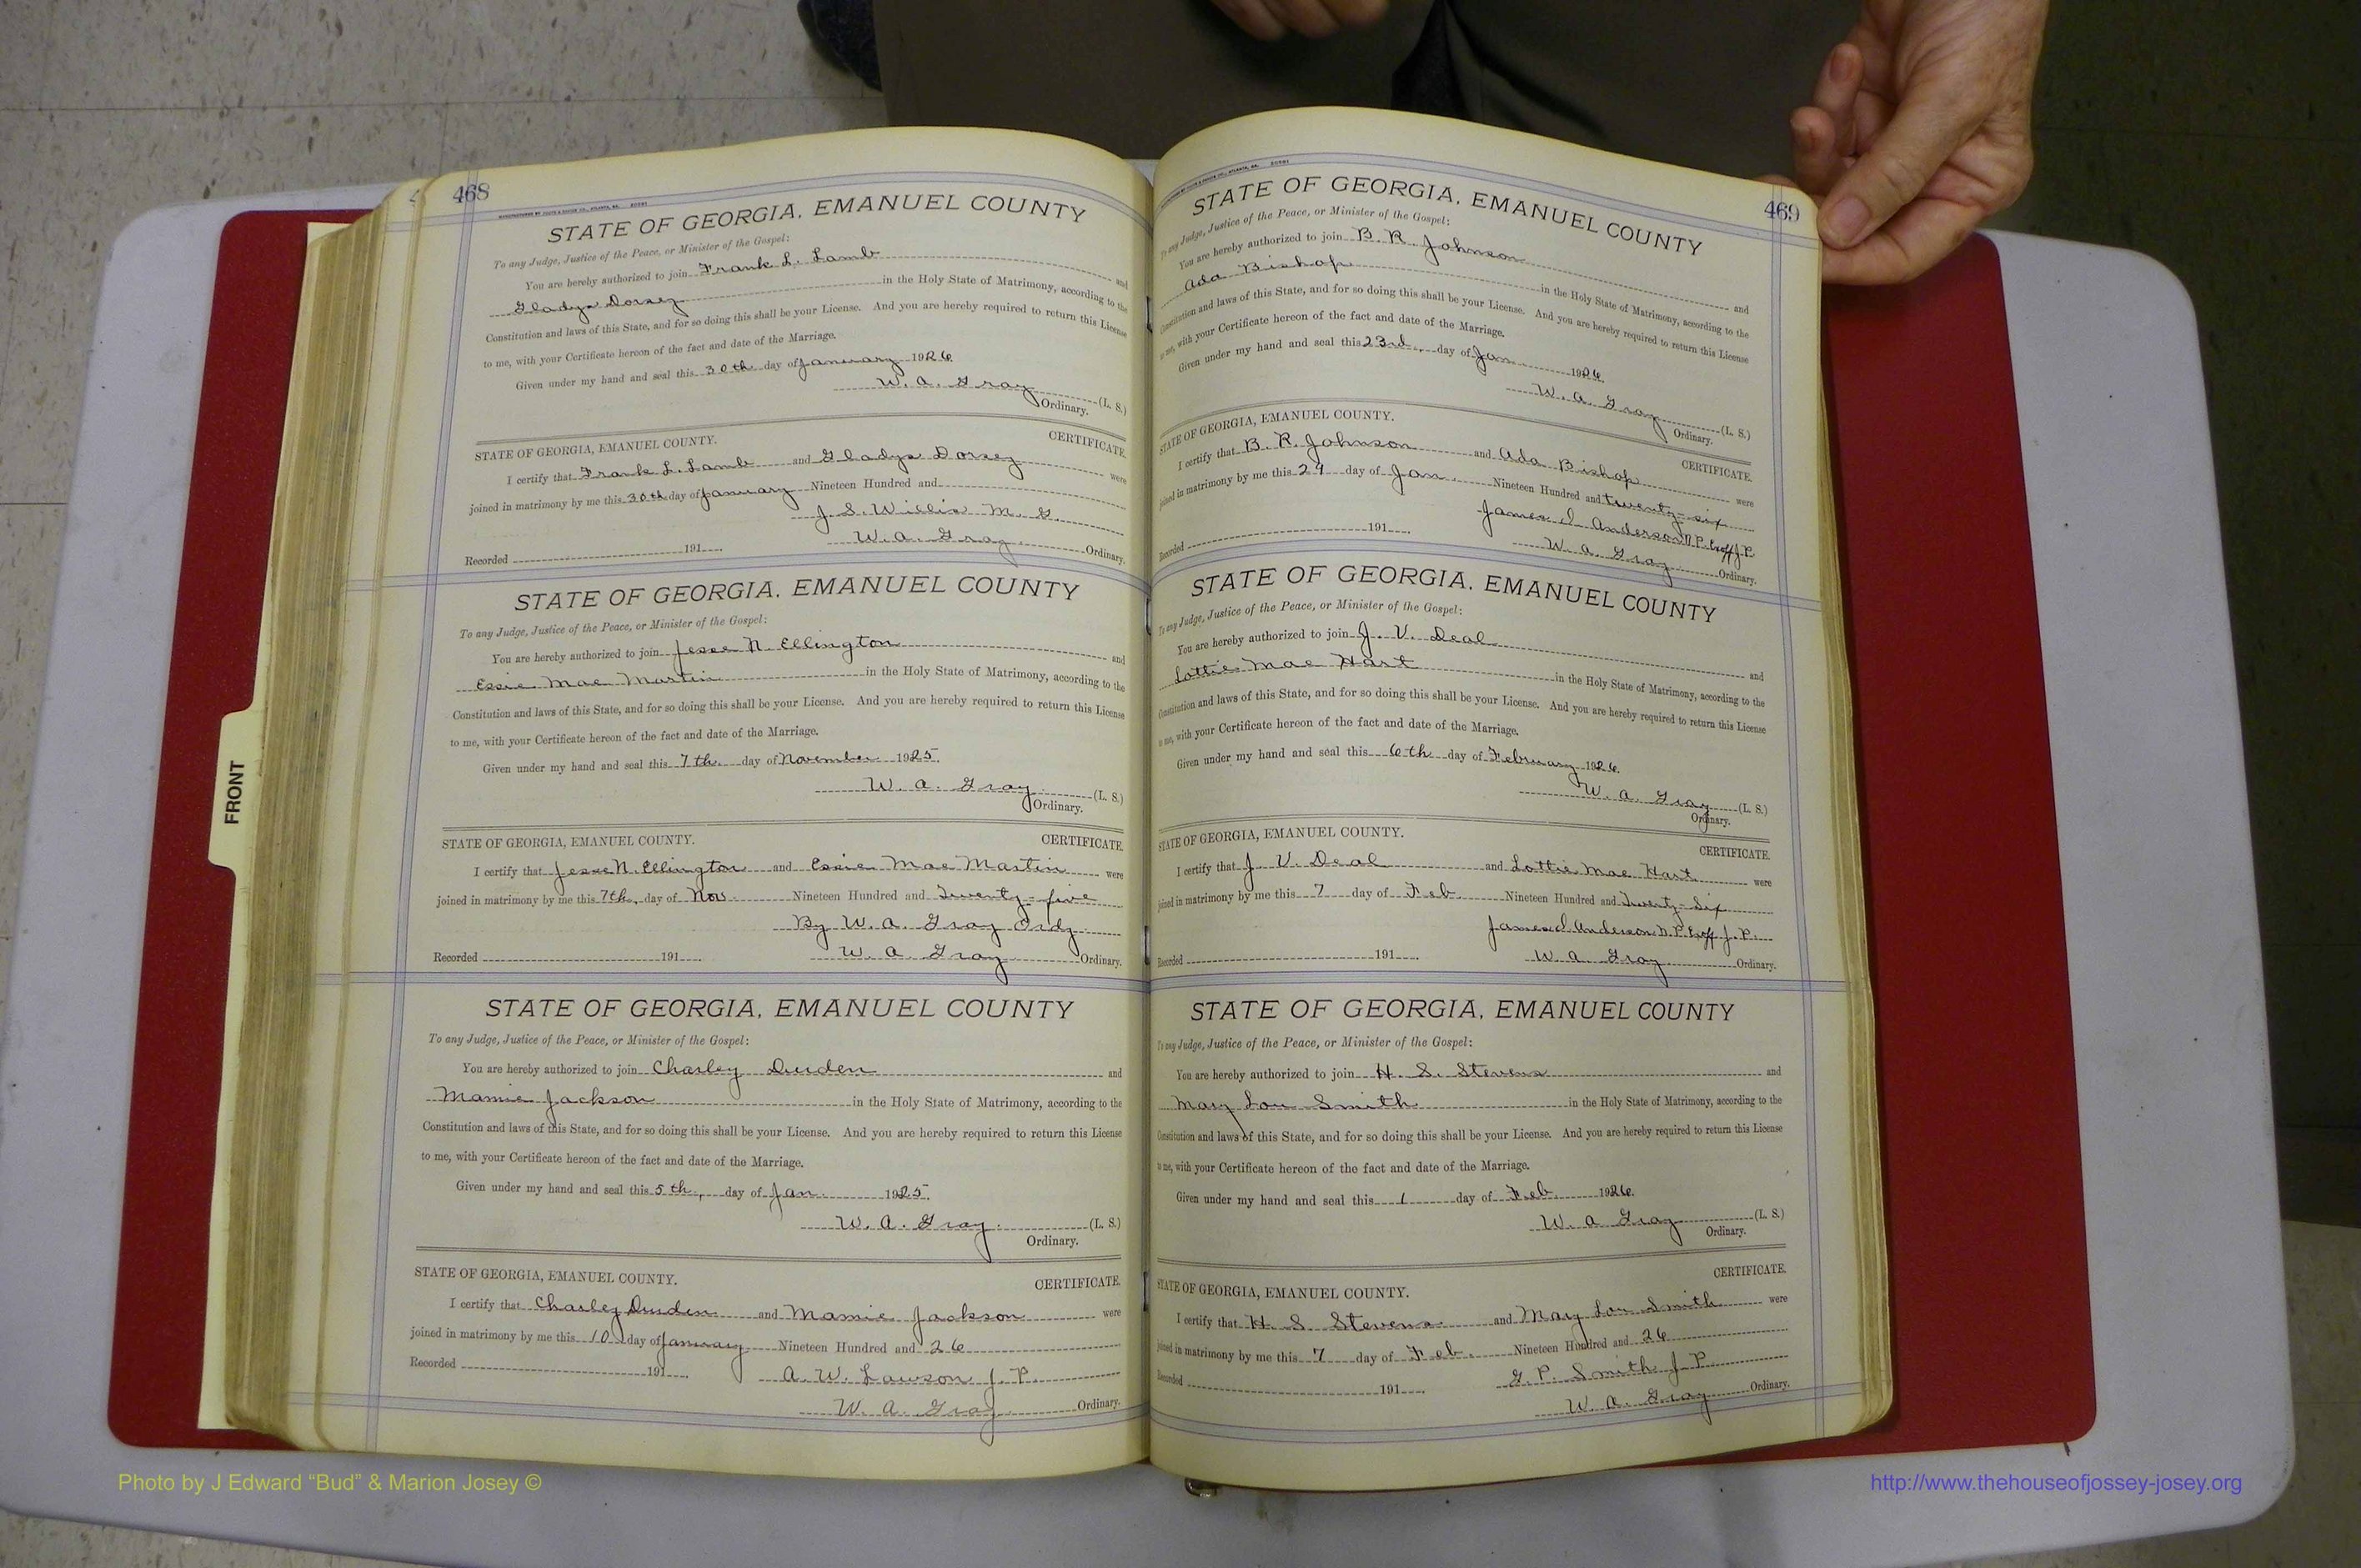 468
STATE OF GEORGIA, EMANUEL COUNTY
To any Judge, Justice of the Peace, or Minister of the Gospel:
You are hereby authorized to join Frank L. Lamb and
Gladys Dorsey in the Holy State of Matrimony, according to the
Constitution and laws of this State, and for so doing this shall be your License. And you are hereby required to return this License
to me, with your Certificate hereon of the fact and date of the Marriage.
Given under my hand and seal this 30th day of January 1926.
W. A. Gray (L. S.)
Ordinary.
STATE OF GEORGIA, EMANUEL COUNTY. CERTIFICATE.
I certify that Frank L. Lamb and Gladys Dorsey were
joined in matrimony by me this 30th day of January Nineteen Hundred and
J. S. Willis M. G.
Recorded 191 W. A. Gray Ordinary.
STATE OF GEORGIA, EMANUEL COUNTY
To any Judge, Justice of the Peace, or Minister of the Gospel:
You are hereby authorized to join Jesse N. Ellington and
Essie Mae Martin in the Holy State of Matrimony, according to the
Constitution and laws of this State, and for so doing this shall be your License. And you are hereby required to return this License
to me, with your Certificate hereon of the fact and date of the Marriage.
Given under my hand and seal this 7th. day of November 1925.
W. A. Gray (L. S.)
Ordinary.
STATE OF GEORGIA, EMANUEL COUNTY. CERTIFICATE.
I certify that Jesse N. Ellington and Essie Mae Martin were
joined in matrimony by me this 7th. day of Nov. Nineteen Hundred and Twenty-five
By W. A. Gray Ordy.
Recorded 191 W. A. Gray Ordinary.
STATE OF GEORGIA, EMANUEL COUNTY
To any Judge, Justice of the Peace, or Minister of the Gospel:
You are hereby authorized to join Charley Durden and
Mamie Jackson in the Holy State of Matrimony, according to the
Constitution and laws of this State, and for so doing this shall be your License. And you are hereby required to return this License
to me, with your Certificate hereon of the fact and date of the Marriage.
Given under my hand and seal this 5th., day of Jan. 1925.
W. A. Gray. (L. S.)
Ordinary.
STATE OF GEORGIA, EMANUEL COUNTY. CERTIFICATE.
I certify that Charley Durden and Mamie Jackson were
joined in matrimony by me this 10 day of January Nineteen Hundred and 26
Recorded 191 A. W. Lawson J. P.
W. A. Gray Ordinary.
469
STATE OF GEORGIA, EMANUEL COUNTY
To any Judge, Justice of the Peace, or Minister of the Gospel:
You are hereby authorized to join B. R. Johnson and
Ada Bishop in the Holy State of Matrimony, according to the
Constitution and laws of this State, and for so doing this shall be your License. And you are hereby required to return this License
to me, with your Certificate hereon of the fact and date of the Marriage.
Given under my hand and seal this 23rd., day of Jan 1926.
W. A. Gray (L. S.)
Ordinary.
STATE OF GEORGIA, EMANUEL COUNTY. CERTIFICATE.
I certify that B. R. Johnson and Ada Bishop were
joined in matrimony by me this 24 day of Jan. Nineteen Hundred and twenty-six
James I. Anderson N.P. Exoff J.P.
Recorded 191 W. A. Gray Ordinary.
STATE OF GEORGIA, EMANUEL COUNTY
To any Judge, Justice of the Peace, or Minister of the Gospel:
You are hereby authorized to join J. V. Deal and
Lottie Mae Hart in the Holy State of Matrimony, according to the
Constitution and laws of this State, and for so doing this shall be your License. And you are hereby required to return this License
to me, with your Certificate hereon of the fact and date of the Marriage.
Given under my hand and seal this 6th day of February 1926.
W. A. Gray (L. S.)
Ordinary.
STATE OF GEORGIA, EMANUEL COUNTY. CERTIFICATE.
I certify that J. V. Deal and Lottie Mae Hart were
joined in matrimony by me this 7 day of Feb. Nineteen Hundred and Twenty-Six
James I. Anderson N.P. Exoff J. P.
Recorded 191 W. A. Gray Ordinary.
STATE OF GEORGIA, EMANUEL COUNTY
To any Judge, Justice of the Peace, or Minister of the Gospel:
You are hereby authorized to join H. S. Stevens and
Mary Lou Smith in the Holy State of Matrimony, according to the
Constitution and laws of this State, and for so doing this shall be your License. And you are hereby required to return this License
to me, with your Certificate hereon of the fact and date of the Marriage.
Given under my hand and seal this 1 day of Feb. 1926.
W. A Gray (L. S.)
Ordinary.
STATE OF GEORGIA, EMANUEL COUNTY. CERTIFICATE.
I certify that H. S. Stevens and Mary Lou Smith were
joined in matrimony by me this 7 day of Feb. Nineteen Hundred and 26
Recorded 191 G. P. Smith J. P.
W. A. Gray Ordinary.
FRONT
Photo by J Edward “Bud” & Marion Josey ©
http://www.thehouseofjossey-josey.org